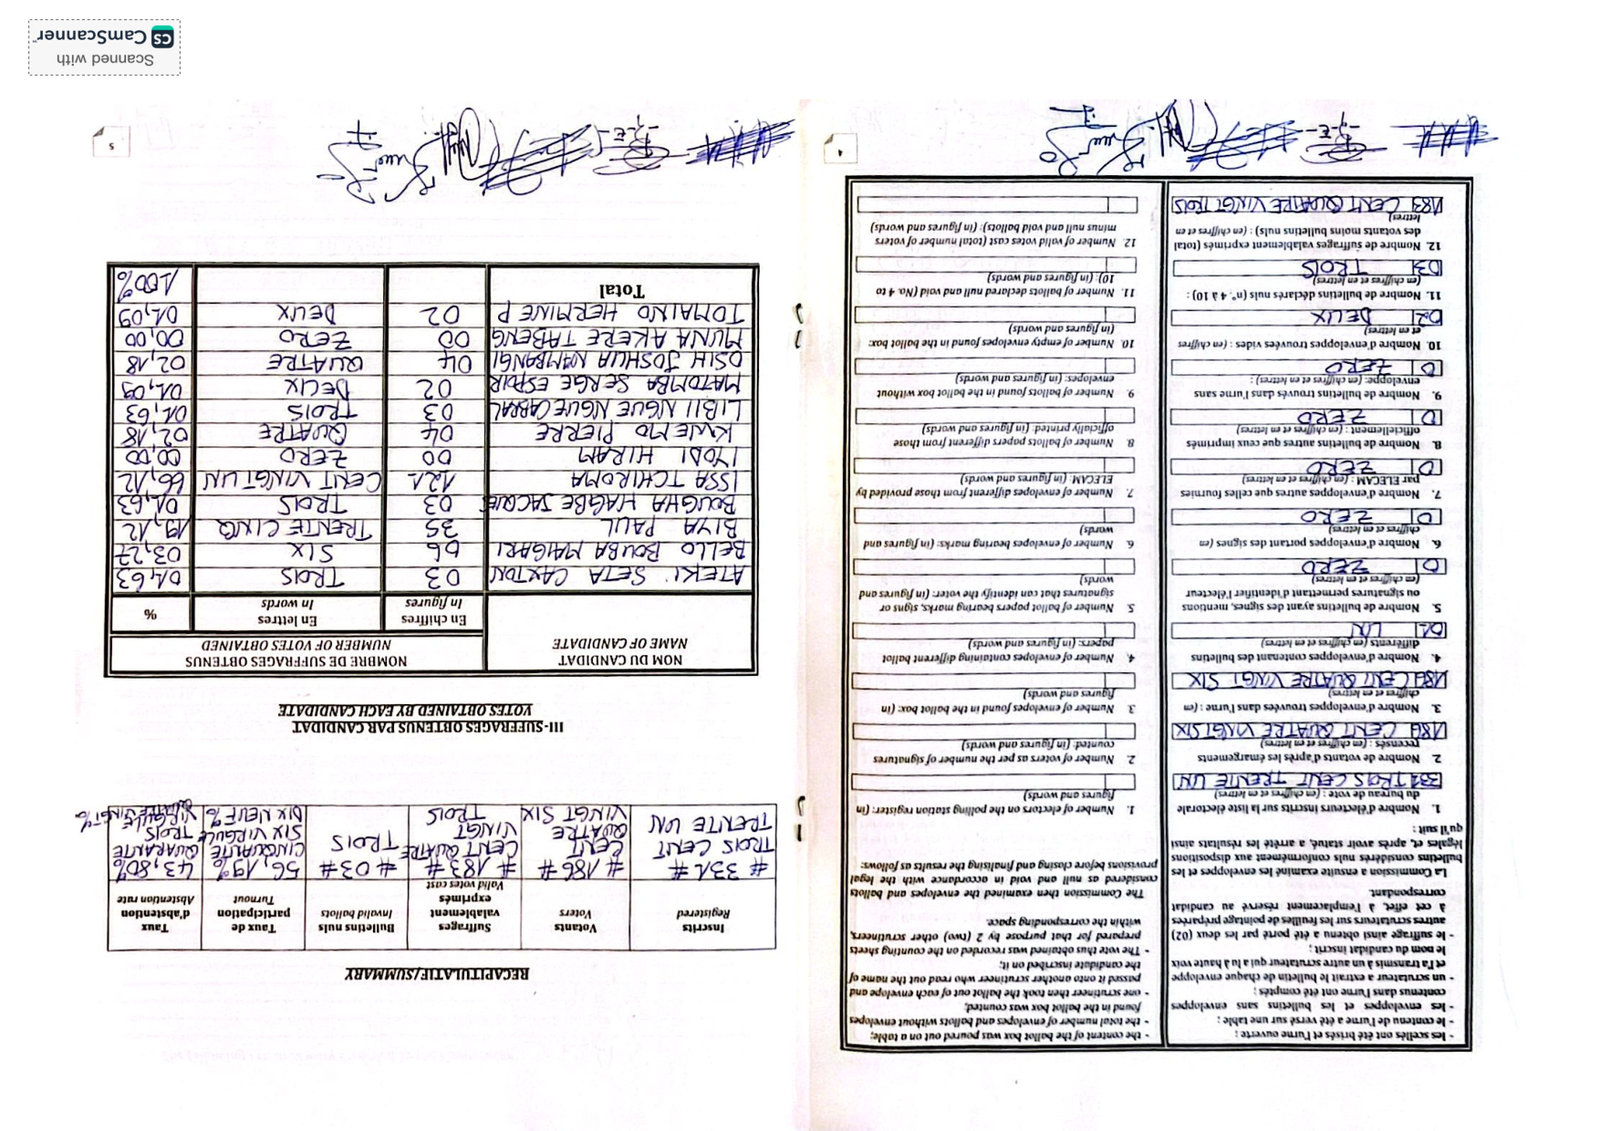 - les scellés ont été brisés et l'urne ouverte ;
- le contenu de l'urne a été versé sur une table ;
- les enveloppes et les bulletins sans enveloppes
contenus dans l'urne ont été comptés ;
- un scrutateur a extrait le bulletin de chaque enveloppe
et l'a transmis à un autre scrutateur qui a lu à haute voix
le nom du candidat inscrit ;
- le suffrage ainsi obtenu a été porté par les deux (02)
autres scrutateurs sur les feuilles de pointage préparées
à cet effet, à l'emplacement réservé au candidat
correspondant.
La Commission a ensuite examiné les enveloppes et les
bulletins considérés nuls conformément aux dispositions
légales et, après avoir statué, a arrêté les résultats ainsi
qu'il suit :
1. Nombre d'électeurs inscrits sur la liste électorale
du bureau de vote : (en chiffres et en lettres)
331 TROIS CENT TRENTE UN
2. Nombre de votants d'après les émargements
recensés : (en chiffres et en lettres)
186 CENT QUATRE VINGT SIX
3. Nombre d'enveloppes trouvées dans l'urne : (en
chiffres et en lettres)
186 CENT QUATRE VINGT SIX
4. Nombre d'enveloppes contenant des bulletins
différents (en chiffres et en lettres)
01 UN
5. Nombre de bulletins ayant des signes, mentions
ou signatures permettant d'identifier l'électeur
(en chiffres et en lettres)
0 ZERO
6. Nombre d'enveloppes portant des signes (en
chiffres et en lettres)
0 ZERO
7. Nombre d'enveloppes autres que celles fournies
par ELECAM : (en chiffres et en lettres)
0 ZERO
8. Nombre de bulletins autres que ceux imprimés
officiellement : (en chiffres et en lettres)
0 ZERO
9. Nombre de bulletins trouvés dans l'urne sans
enveloppe: (en chiffres et en lettres) :
0 ZERO
10. Nombre d'enveloppes trouvées vides : (en chiffres
et en lettres)
02 DEUX
11. Nombre de bulletins déclarés nuls (n°. 4 à 10) :
(en chiffres et en lettres)
03 TROIS
12. Nombre de suffrages valablement exprimés (total
des votants moins bulletins nuls) : (en chiffres et en
lettres)
183 CENT QUATRE VINGT TROIS
- the content of the ballot box was poured out on a table;
- the total number of envelopes and ballots without envelopes
found in the ballot box was counted;
- one scrutineer then took the ballot out of each envelope and
passed it onto another scrutineer who read out the name of
the candidate inscribed on it;
- The vote thus obtained was recorded on the counting sheets
prepared for that purpose by 2 (two) other scrutineers,
within the corresponding space.
The Commission then examined the envelopes and ballots
considered as null and void in accordance with the legal
provisions before closing and finalising the results as follows:
1. Number of electors on the polling station register: (in
figures and words)
2. Number of voters as per the number of signatures
counted: (in figures and words)
3. Number of envelopes found in the ballot box: (in
figures and words)
4. Number of envelopes containing different ballot
papers: (in figures and words)
5. Number of ballot papers bearing marks, signs or
signatures that can identify the voter: (in figures and
words)
6. Number of envelopes bearing marks: (in figures and
words)
7. Number of envelopes different from those provided by
ELECAM: (in figures and words)
8. Number of ballots papers different from those
officially printed: (in figures and words)
9. Number of ballots found in the ballot box without
envelopes: (in figures and words)
10. Number of empty envelopes found in the ballot box:
(in figures and words)
11. Number of ballots declared null and void (No. 4 to
10): (in figures and words)
12. Number of valid votes cast (total number of voters
minus null and void ballots): (in figures and words)
4
RECAPITULATIF/SUMMARY
Inscrits Registered
Votants Voters
Bulletins nuls Invalid ballots
Suffrages valablement exprimés Valid votes cast
Taux de participation Turnout
Taux d'abstention Abstention rate
# 331 # TROIS CENT TRENTE UN
# 186 # CENT QUATRE VINGT SIX
# 183 # CENT QUATRE VINGT TROIS
# 03 # TROIS
56,19% CINQUANTE SIX VIRGULE DIX NEUF %
43,80% QUARANTE TROIS VIRGULE QUATRE VINGT %
III- SUFFRAGES OBTENUS PAR CANDIDAT
VOTES OBTAINED BY EACH CANDIDATE
NOM DU CANDIDAT
NAME OF CANDIDATE
NOMBRE DE SUFFRAGES OBTENUS
NUMBER OF VOTES OBTAINED
En chiffres In figures
En lettres In words
%
ATEKI SETA CAXTON 03 TROIS 01,63
BELLO BOUBA MAIGARI 06 SIX 03,27
BIYA PAUL 35 TRENTE CINQ 19,12
BOUGHA HAGBE JACQUES 03 TROIS 01,63
ISSA TCHIROMA 121 CENT VINGT UN 66,12
IYODI HIRAM 00 ZERO 00,00
KWEMO PIERRE 04 QUATRE 02,18
LIBII NGUE NGUE CABRAL 03 TROIS 01,63
MATOMBA SERGE ESPOIR 02 DEUX 01,09
OSIH JOSHUA NAMBANGI 04 QUATRE 02,18
MUNA AKERE TABENG 00 ZERO 00,00
TOMAINO HERMINE P 02 DEUX 01,09
Total 100%
5
Scanned with
CS CamScanner